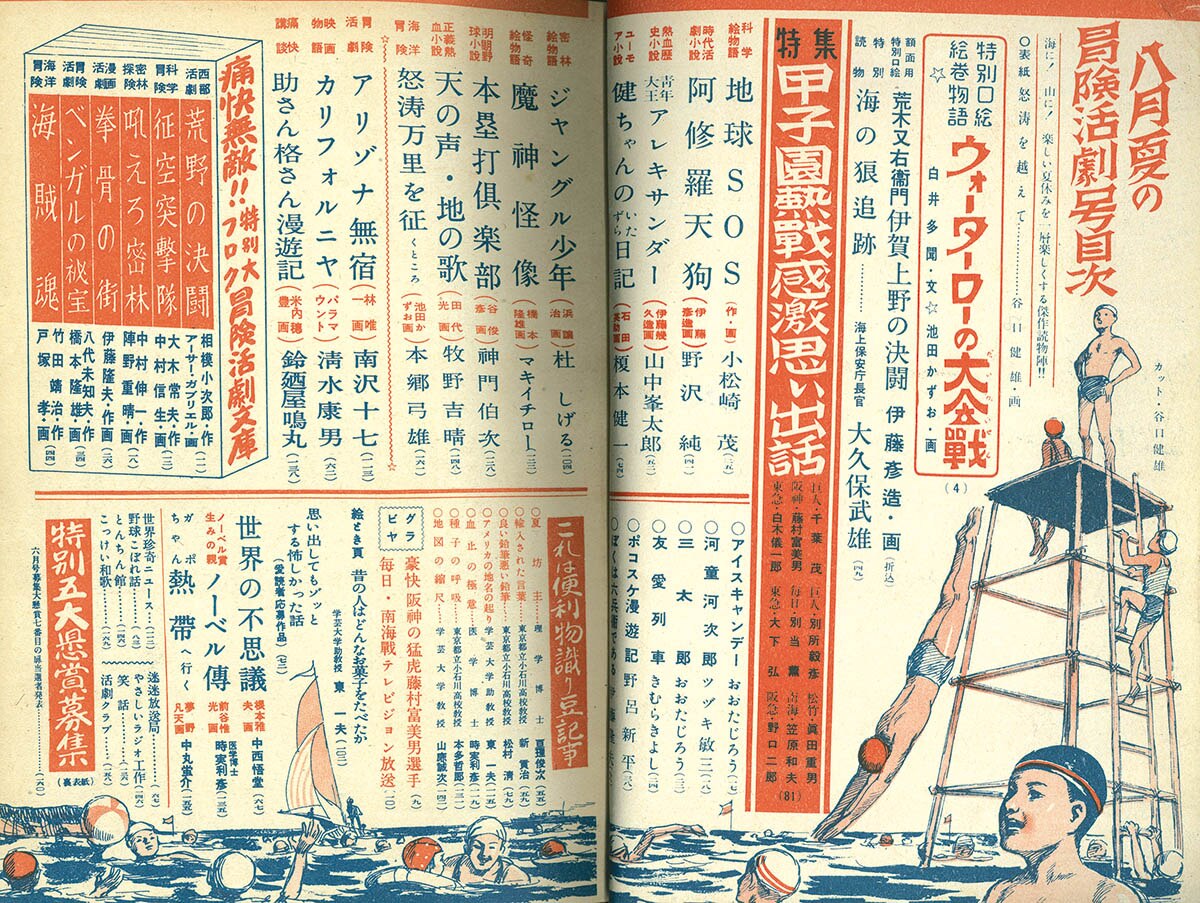 八月夏の
冒険活劇号目次
海に! 山に! 楽しい夏休みを一層楽しくする傑作読物陣!!
○表紙 怒涛を越えて………谷口健雄・画
カット・谷口健雄
特別口絵
絵巻物語
☆
ウォーターローの大会戰
白井多聞・文☆池田かずお・画
(4)
額面用
特別口絵
荒木又右衞門伊賀上野の決闘 伊藤彦造・画(折込)
特別
読物
海の狼追跡 海上保安庁長官 大久保武雄(四九)
特集
甲子園熱戰感激思い出話
巨人・千葉茂 巨人・別所毅彦 松竹・眞田重男
阪神・藤村富美男 毎日・別当薫 南海・笠原和夫
東急・白木儀一郎 東急・大下弘 阪急・野口二郎
(81)
科学
絵物語
地球SOS(作・画)小松崎茂
時代活
劇小説
阿修羅天狗(伊藤彦造画)野沢純(四一)
熱血歴
史小説
青年
大王
アレキサンダー(伊藤幾久造画)山中峯太郎
ユーモ
ア小説
健ちゃんのいたずら日記(石田英助画)榎本健一(七四)
密林
絵物語
ジャングル少年(浜譲治画)杜しげる(二〇四)
怪奇
絵物語
魔神怪像(橋本隆雄画)マキイチロー
明朗野
球小說
本塁打倶楽部(谷彦画)神門伯次
正義熱
血小說
天の声・地の歌(田代光画)牧野吉晴(一四八)
海洋
冒険
怒涛万里を征くところ(池田かずお画)本郷弓雄
冒険
活劇
アリゾナ無宿(林唯一画)南沢十七(一一三)
映画
物語
カリフォルニヤ(パラマウント)清水康男(六二)
痛快
講談
助さん格さん漫遊記(米内穂豊画)鈴廼屋鳴丸
○アイスキャンデー おおたじろう(七)
○河童河次郎 ツヅキ敏三(八)
○三太郎 おおたじろう
○友愛列車 きむらきよし
○ポコスケ漫遊記 野呂新平
○ぼくは六兵衛である
痛快無敵!!特別大フロク冒険活劇文庫
西部
活劇
荒野の決闘
相模小次郎・作
アーサー・ガブリエル・画
科学
冒険
征空突擊隊
大木常夫・作
中村信生・画
密林
探険
吼えろ密林
中村伸一・作
陣野重晴・画
漫画
活劇
拳骨の街
伊藤隆夫・作画
冒険
活劇
ベンガルの祕宝
八代未知夫・作
橋本隆雄・画
海洋
冒険
海賊魂
竹田靖治・作
戸塚孝・画
これは便利物識り豆記事
○夏坊主 理学博士 亘理俊次
○輸入された言葉 東京都立小石川高校教授 新貫治
○良い鉛筆悪い鉛筆 東京都立小石川高校教授 松村清
○アメリカの地名の起り 学芸大学助教授 東一夫
○血止の極意 医学博士 時実利彦
○種子の呼吸 東京都立小石川高校教授 本多哲郎
○地図の縮尺 学芸大学教授 山鹿誠次
グラ
ビヤ
豪快阪神の猛虎藤村富美男選手(九)
毎日・南海戰テレビジョン放送
絵とき頁 昔の人はどんなお菓子をたべたか
学芸大学助教授 東一夫
思い出してもゾッと
する怖しかった話
(愛読者応募作品)
世界の不思議 榎本雅夫画 中西悟堂(六七)
ノーベル賞
生みの親
ノーベル傳 前谷惟光画 医学博士 時実利彦
ガボちゃん熱帶へ行く 夢野凡天画 中丸蛍介
世界珍奇ニュース
野球こぼれ話(八三)
とんちん館
こっけい和歌
迷迷放送局
やさしいラジオ工作
笑話
活劇クラブ
特別五大懸賞募集(裏表紙)
六月号募集大懸賞七番目の扉当選者発表